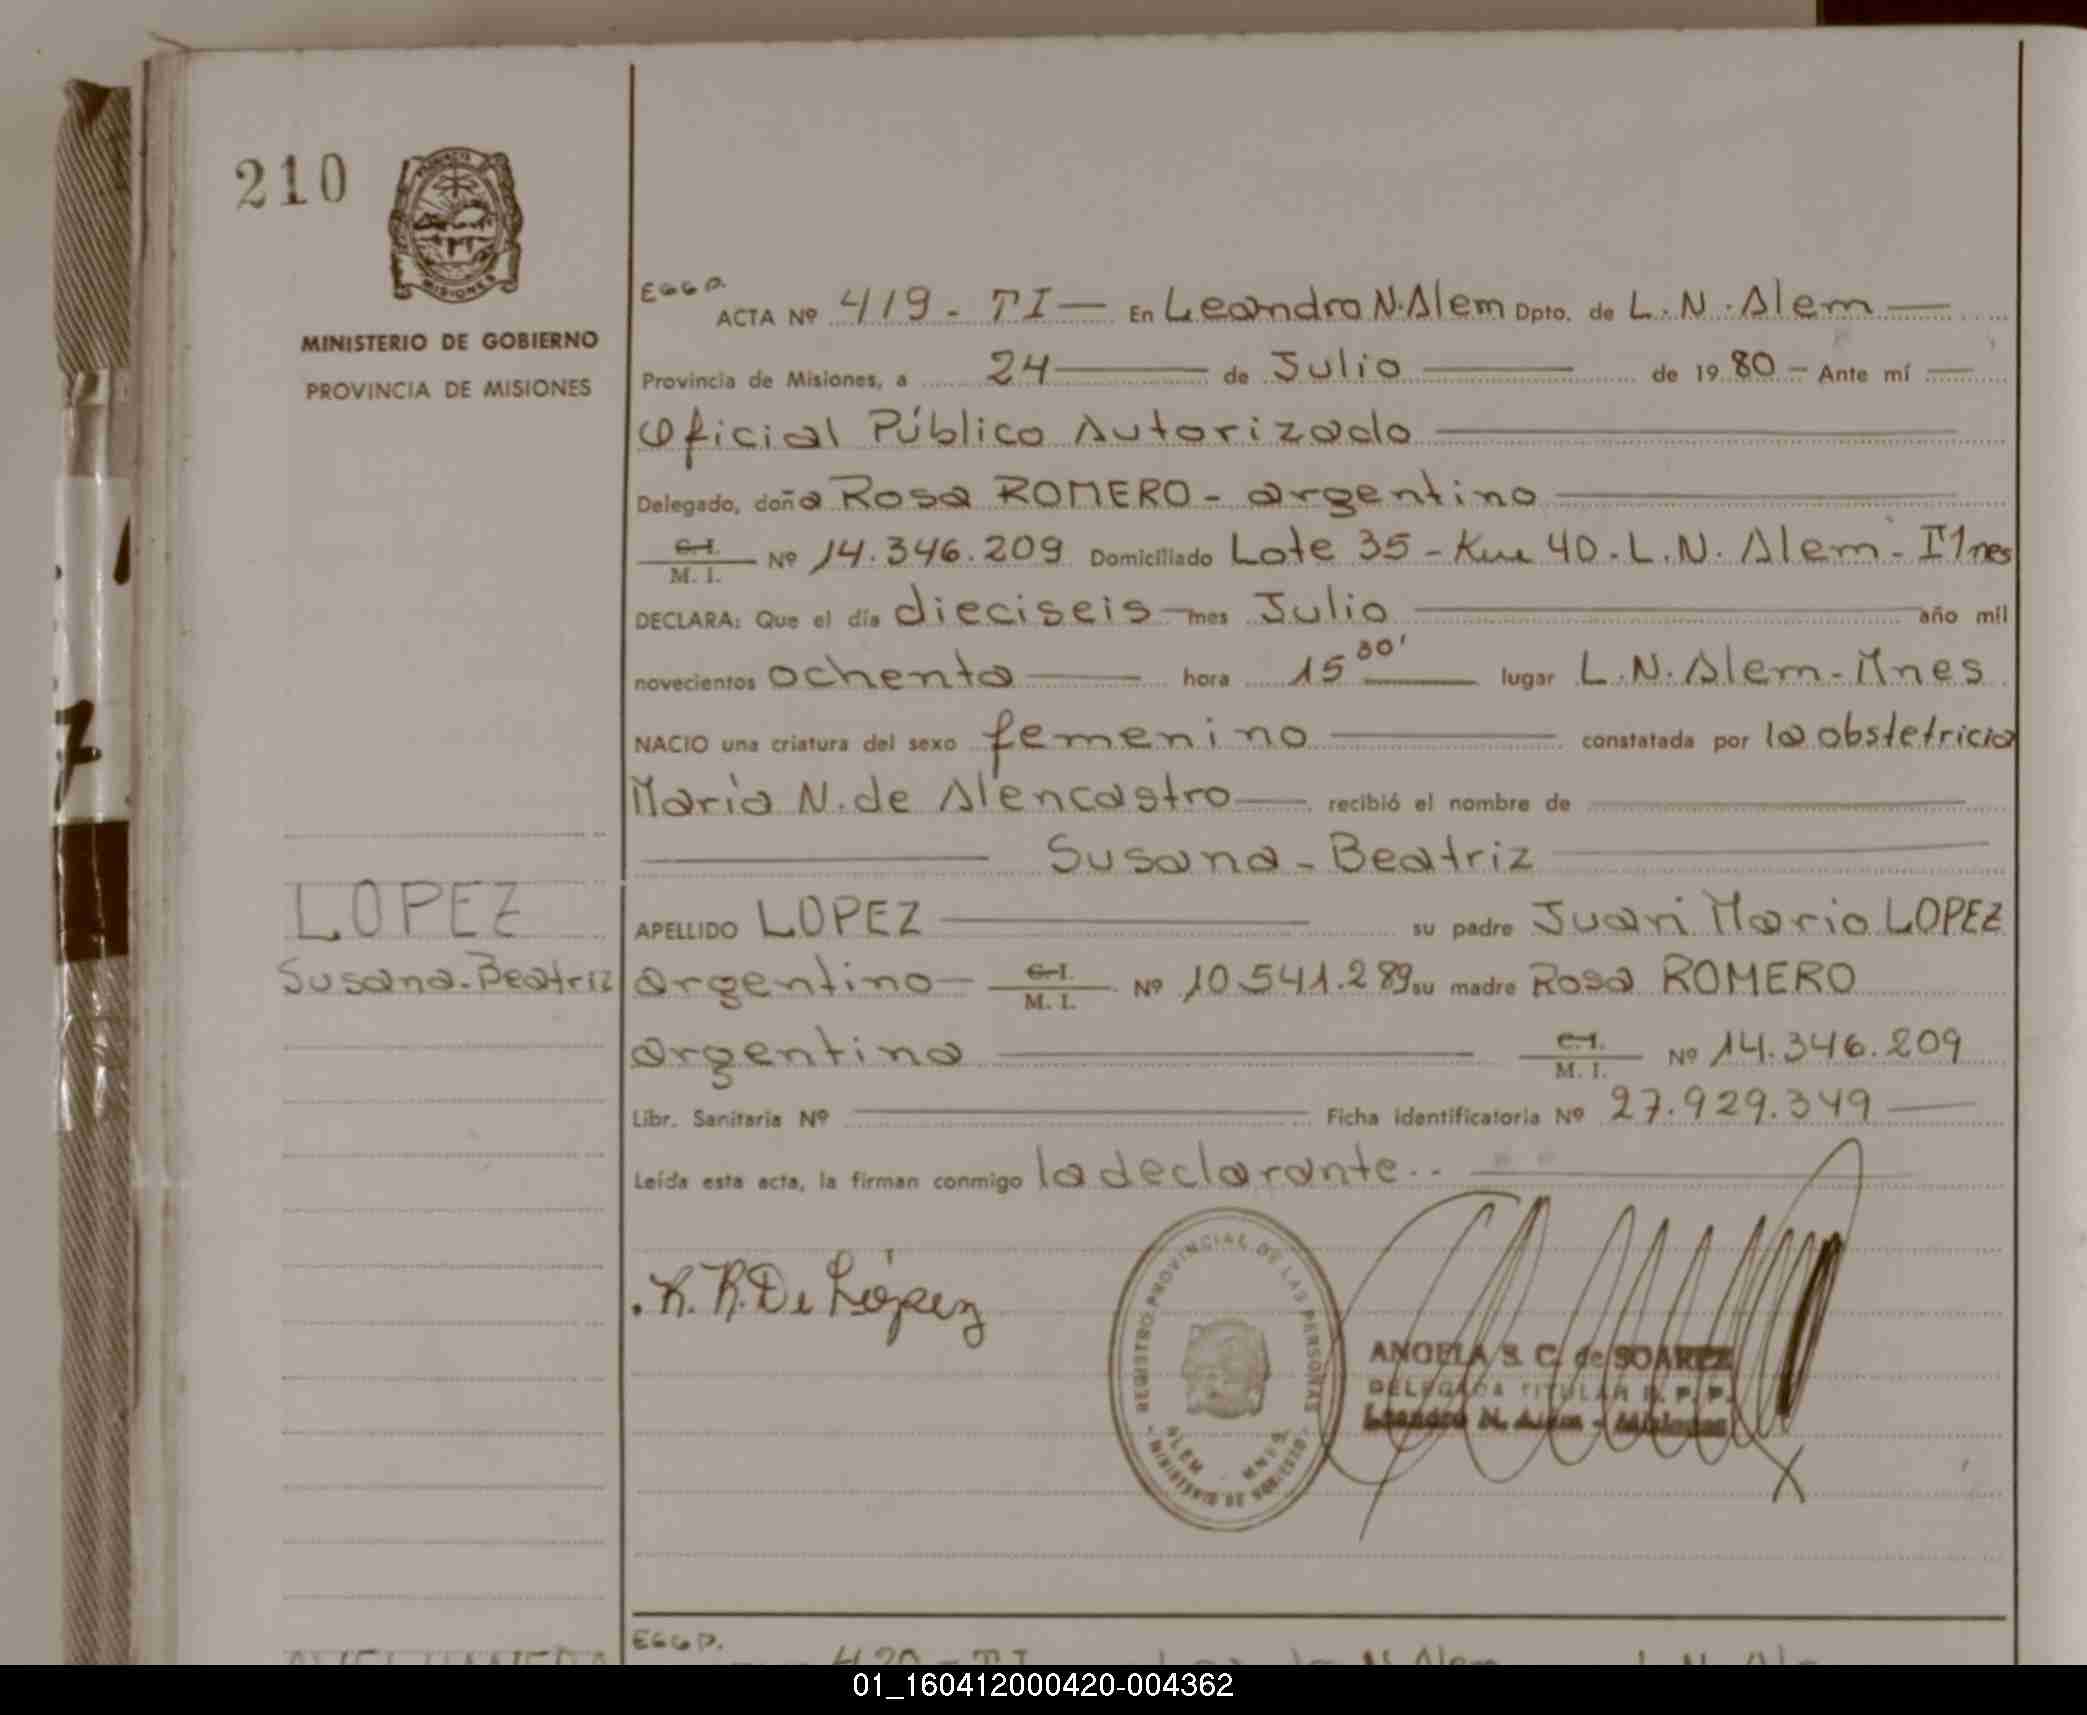 210
MINISTERIO DE GOBIERNO
PROVINCIA DE MISIONES
EGGD.
ACTA Nº 419 - TI — En Leandro N. Alem Dpto. de L. N. Alem —
Provincia de Misiones, a 24 — de Julio — de 19 80 — Ante mí —
Oficial Público Autorizado —
Delegado, doña Rosa ROMERO - argentina —
C. I. / M. I. Nº 14.346.209 Domiciliado Lote 35 - Km 40 - L. N. Alem -
DECLARA: Que el día dieciseis — mes Julio — año mil
novecientos ochenta — hora 15 00' — lugar L. N. Alem - Mnes
NACIO una criatura del sexo femenino — constatada por la obstetricia
María N. de Alencastro — recibió el nombre de —
— Susana - Beatriz —
LOPEZ
Susana-Beatriz
APELLIDO LOPEZ — su padre Juan Mario LOPEZ
argentino — C. I. / M. I. Nº 10.541.289 su madre Rosa ROMERO
argentina — C. I. / M. I. Nº 14.346.209
Libr. Sanitaria Nº — Ficha identificatoria Nº 27.929.349 —
Leída esta acta, la firman conmigo la declarante.. —
R. R. De López
REGISTRO PROVINCIAL DE LAS PERSONAS
ALEM - MNES
MINISTERIO DE GOBIERNO
ANGELA S. C. de SOAREZ
DELEGADA TITULAR R. P. P.
Leandro N. Alem - Misiones
EGGD.
420 - TI
01_160412000420-004362